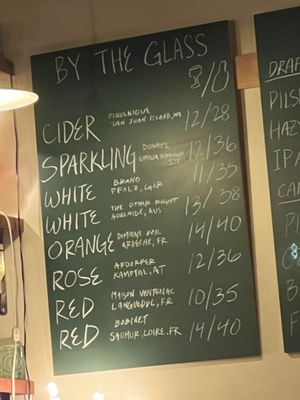 BY THE GLASS
CIDER PIQUENIQUE SAN JUAN ISLAND, WA 12/28
SPARKLING DONATI EMILIA ROMAGNA 12/36
WHITE BRAND PFALZ, GER 11/35
WHITE THE OTHER RIGHT ADELAIDE, AUS 13/38
ORANGE DOMAINE OZIL ARDECHE, FR 14/40
ROSE ARDORFER KAMPTAL, AT 12/36
RED MAISON VENTENAC LANGUEDOC, FR 10/35
RED BOBINET SAUMUR, LOIRE, FR 14/40
DRAF
PILS
HAZY
IPA
CA
P